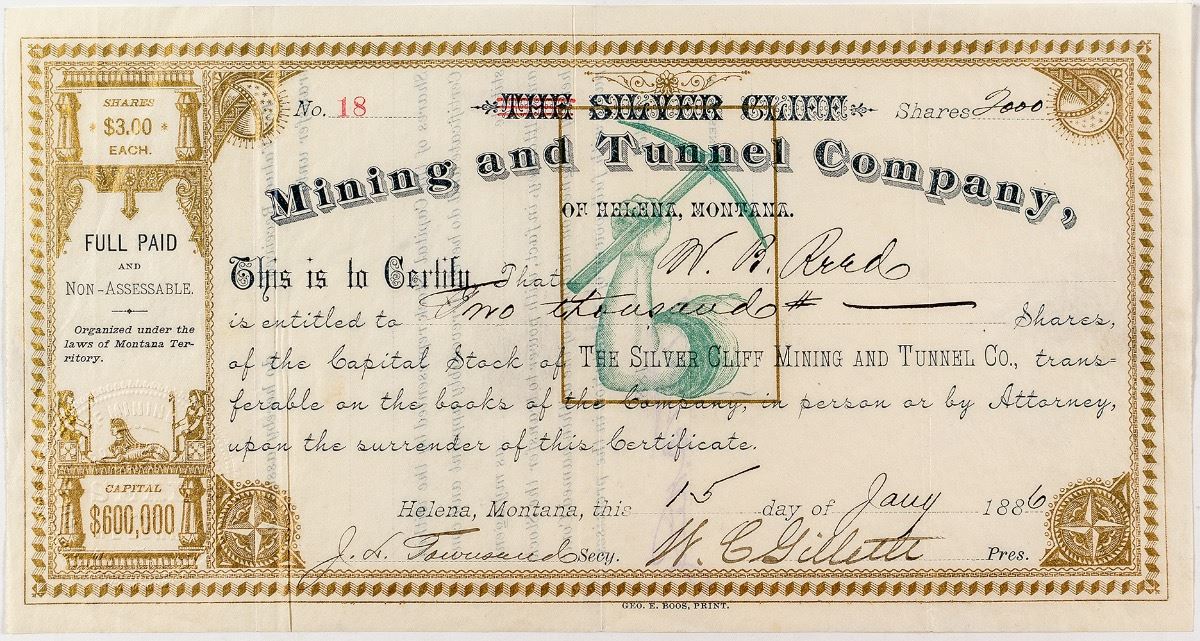 SHARES
$3.00
EACH.
FULL PAID
AND
NON-ASSESSABLE.
Organized under the
laws of Montana Ter-
ritory.
CAPITAL
$600,000
No. 18
THE SILVER CLIFF
Shares 2000
Mining and Tunnel Company,
OF HELENA, MONTANA.
This is to Certify That W. B. Reed
is entitled to Two thousand Shares,
of the Capital Stock of THE SILVER CLIFF MINING AND TUNNEL CO., trans-
ferable on the books of the Company, in person or by Attorney,
upon the surrender of this Certificate.
Helena, Montana, this 15 day of Jany 1886
J. H. Townsend Secy. W. C. Gillette Pres.
GEO. E. BOOS, PRINT.